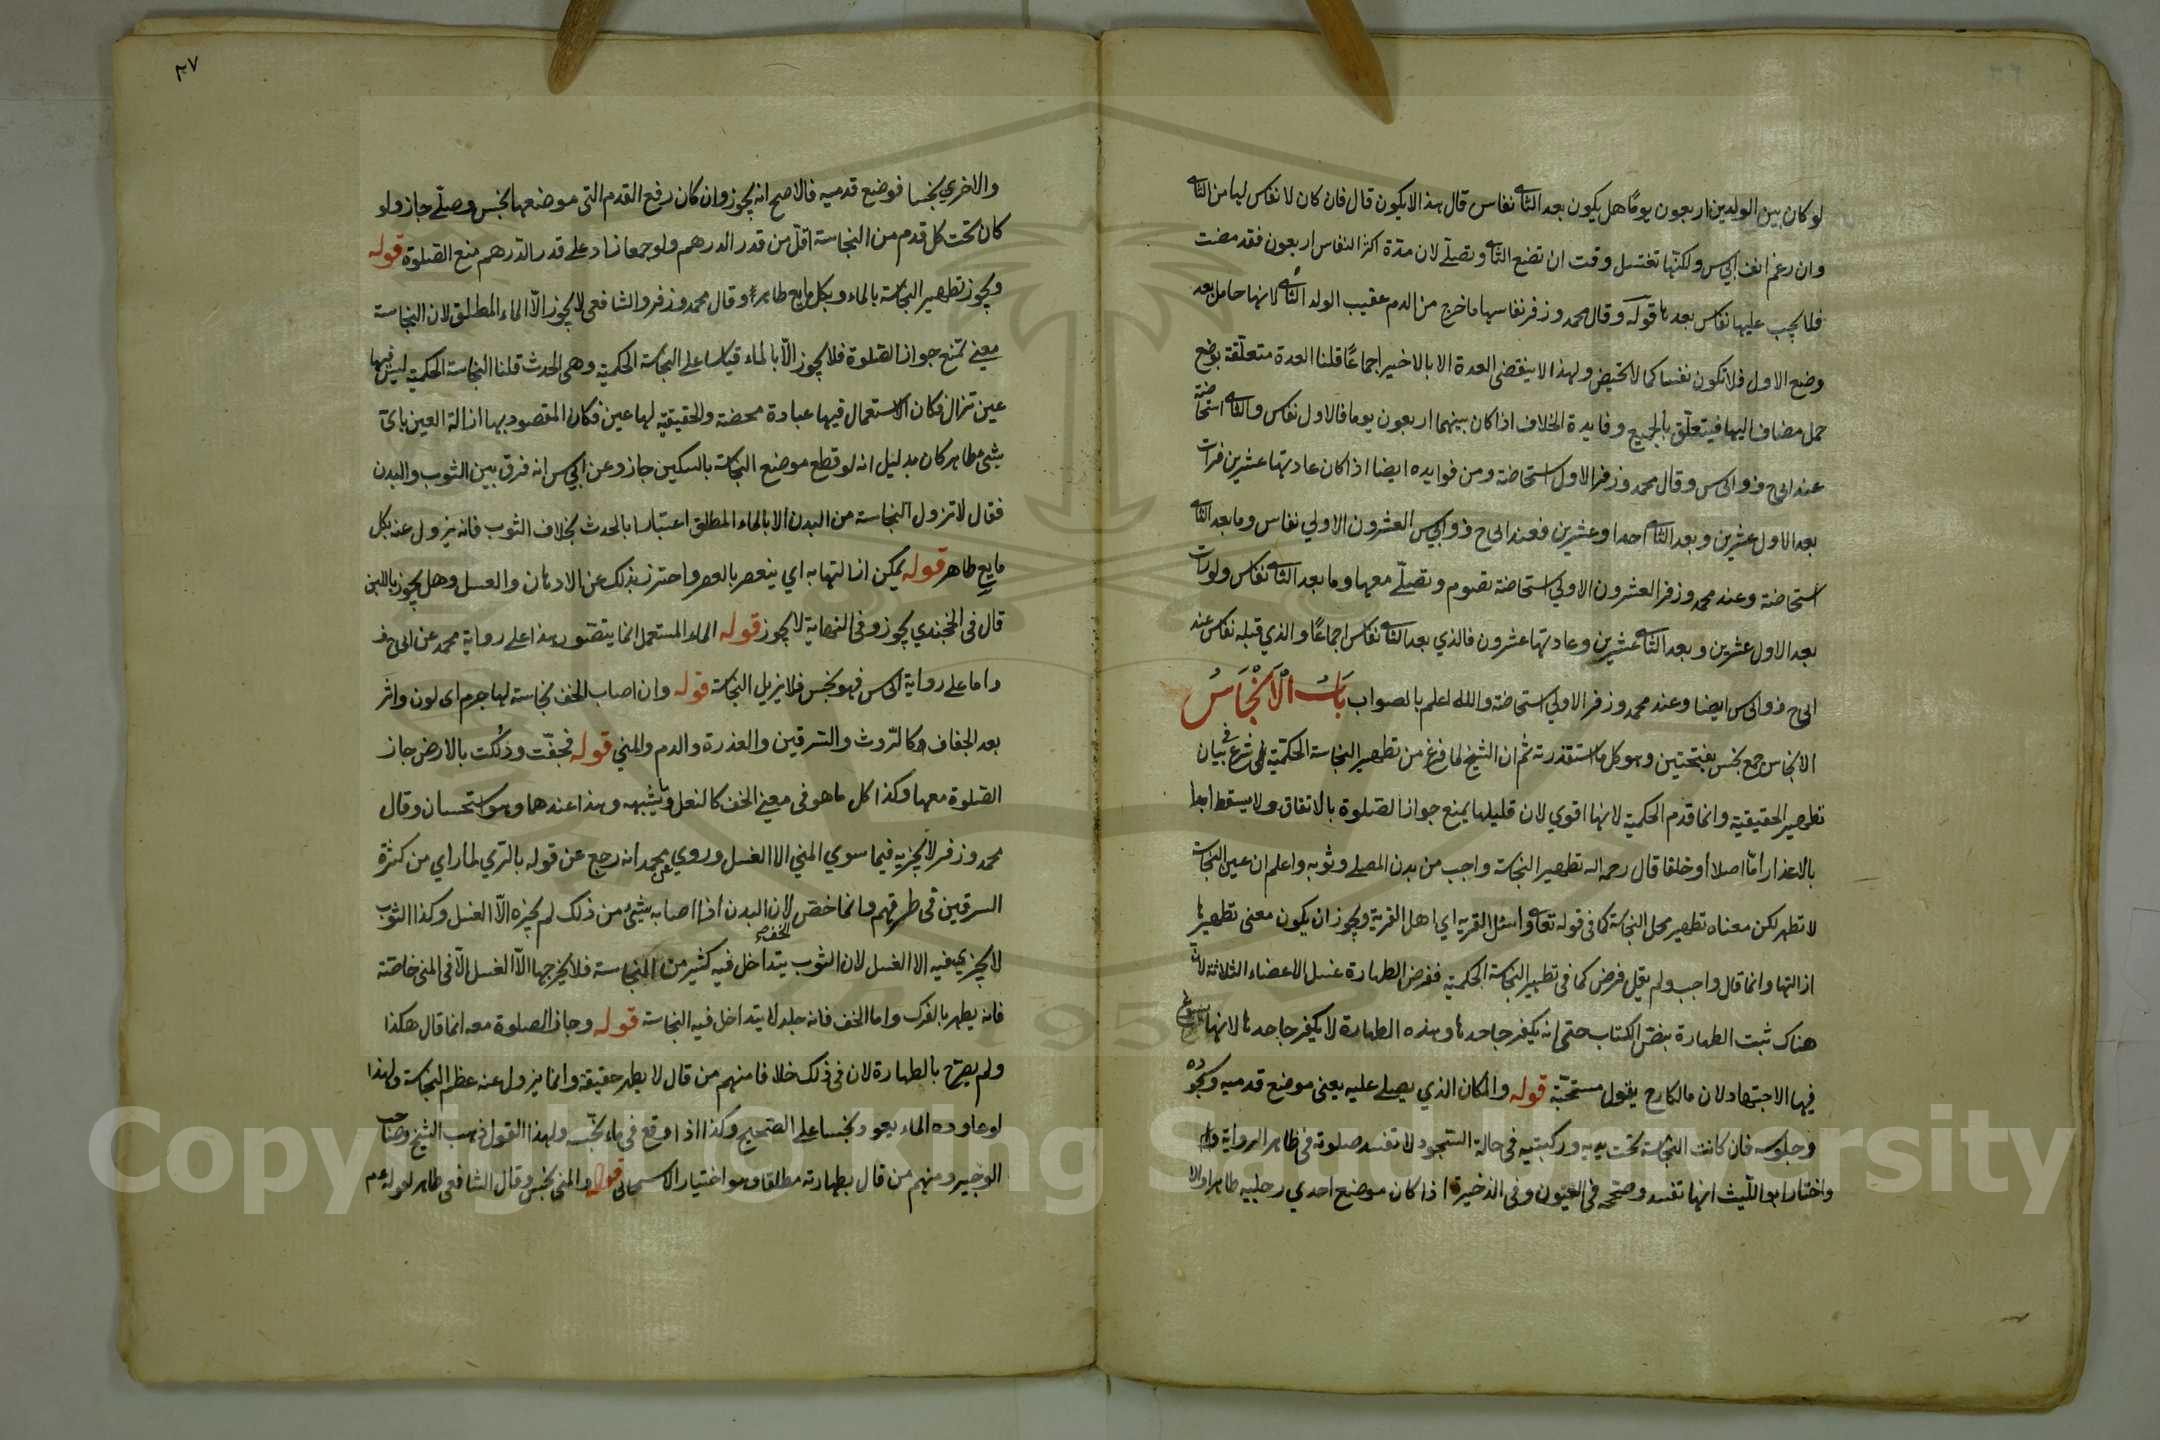 لو كان بين الولدين اربعون يومًا هل يكون بعد الثاني نفاس قال هذا لا يكون قال فان كان لا نفاس لها من الثاني
وان رغم انف ابي س ولكنها تغتسل وقت ان تضع الثاني وتصلّي لان مدّة اكثر النفاس اربعون فقد مضت
فلا يجب عليها نفاس بعدها قوله وقال محمد وزفر نفاسها ما خرج من الدم عقيب الولد الثاني لانها حامل بعد
وضع الاول فلا تكون نفسا كما لا تحيض ولهذا لا ينقضي العدة الا بالاخير اجماعًا قلنا العدة متعلّقة بوضع
حمل مضاف اليها فيتعلّق بالجميع وفايدة الخلاف اذا كان بينهما اربعون يوما فالاول نفاس والثاني استحاضة
عند ابي ح وابي س وقال محمد وزفر الاول استحاضة ومن فوايده ايضا اذا كان عادتها عشرين فرات
بعد الاول عشرين وبعد الثاني احدا وعشرين فعند ابي ح وابي س العشرون الاولي نفاس وما بعد الثاني
استحاضة وعند محمد وزفر العشرون الاولي استحاضة تصوم وتصلّي معها وما بعد الثاني نفاس ولو رات
بعد الاول عشرين وبعد الثاني عشرين وعادتها عشرون فالذي بعد الثاني نفاس اجماعًا والذي قبله نفاس عند
ابي ح وابي س ايضا وعند محمد وزفر الاولي استحاضة والله اعلم بالصواب بَابُ الْاَنْجَاسُ
الانجاس جمع نجس بفتحتين وهو كل ما استقذرته ثم ان الشيخ لما فرغ من تطهير النجاسة الحكميّة شرع في بيان
تطهير الحقيقية وانما قدم الحكمية لانها اقوي لان قليلها يمنع جواز الصّلوة بالاتفاق ولا يسقط ابدا
بالاعذار امّا اصلا او خلفا قال رحمه الله تطهير النجاسة واجب من بدن المصلي وثوبه واعلم ان عين النجاسة
لا تطهر لكن معناه تطهير محل النجاسة كما في قوله تعالى واسئل القرية اي اهل القرية ويجوز ان يكون معنى تطهيرها
ازالتها وانما قال واجب ولم يقل فرض كما في تطهير النجاسة الحكمية ففرض الطهارة غسل الاعضاء الثلاثة لان
هناك ثبت الطهارة بنصّ الكتاب حتى انه يكفر جاحدها وهذه الطهارة لا يكفر جاحدها لانها
فيها الاجتهاد لان مالكا رح يقول مستحبّة قوله والمكان الذي يصلي عليه يعني موضع قدميه وسجوده
وجلوسه فان كانت النجاسة تحت يديه وركبتيه في حالة السّجود لا تفسد صلوته في ظاهر الرواية
واختار ابو اللّيث انها تفسد وصحّحه في العيون وفي الذخيرة اذا كان موضع احدي رجليه طاهرا
٣٧
والاخري نجسا فوضع قدميه فالاصح انه يجوز وان كان رفع القدم التي موضعها نجس وصلّي جاز ولو
كان تحت كل قدم من النجاسة اقلّ من قدر الدرهم ولو جمعا زاد علي قدر الدّرهم منع الصّلوة قوله
ويجوز تطهير النجاسة بالماء وبكل مايع طاهر وقال محمد وزفر والشافعي لا يجوز الّا الماء المطلق لان النجاسة
معني تمنع جواز الصّلوة فلا يجوز الّا بالماء قياسا علي النجاسة الحكميّة وهي الحدث قلنا النجاسة الحكمية ليس فيها
عين تزال فكان الاستعمال فيها عبادة محضة والحقيقيّة لها عين فكان المقصود بها ازالة العين باي
شئ طاهر كان بدليل انه لو قطع موضع النجاسة بالسكين جاز وعن ابي س انه فرق بين الثوب والبدن
فقال لا تزول النجاسة من البدن الا بالماء المطلق اعتبارا بالحدث بخلاف الثوب فانه يزول عنه بكل
مايع طاهر قوله يمكن ازالتها به اي ينعصر بالعصر واحترز بذلك عن الادهان والعسل وهل يجوز باللبن
قال في الخجندي يجوز وفي النهاية لا يجوز قوله الماء المستعمل انما يتصور هذا علي رواية محمد عن ابي ح
واما علي رواية ابي س فهو نجس فلا يزيل النجاسة قوله وان اصاب الخف نجاسة لها جرم اي لون واثر
بعد الجفاف كالرّوث والسّرقين والعذرة والدم والمني قوله فجفّت ودلكت بالارض جاز
الصّلوة معها وكذا كل ما هو في معني الخف كالنعل وما يشبهه وهذا عندهما وهو استحسان وقال
محمد وزفر لا يجزيه فيما سوي المني الا الغسل وروي عن محمد انه رجع عن قوله بالري لما راي من كثرة
السرقين في طرقهم وانما خصّ الخف لان البدن اذا اصابه شئ من ذلك لم يجزه الّا الغسل وكذا الثوب
لا يجزي فيه الا الغسل لان الثوب يتداخل فيه كثير من النجاسة فلا يخرجها الّا الغسل الّا في المني خاصّة
فانه يطهر بالفرك واما الخف فانه جلد لا يتداخل فيه النجاسة قوله وجاز الصلوة معه انما قال هكذا
ولم يصرّح بالطهارة لان في ذلك خلافا منهم من قال لا يطهر حقيقة وانما يزول عنه عظم النجاسة ولهذا
لو عاوده الماء يعود نجسا علي الصحيح وكذا اذا وقع في ماء نجّسه ولهذا القول ذهب الشيخ وصاحب
الوجيز ومنهم من قال بطهارته مطلقا وهو اختيار الاسبيجابي قوله والمني نجس وقال الشافعي طاهر لقوله عم
Copyright © King Saud University
1957